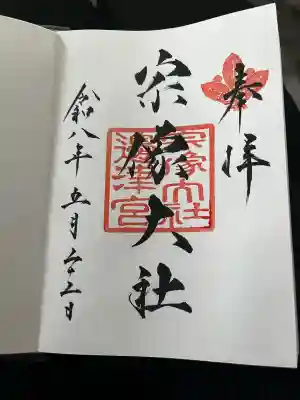 奉拝
宗像大社
宗像大社
邊津宮
令和八年五月二十三日